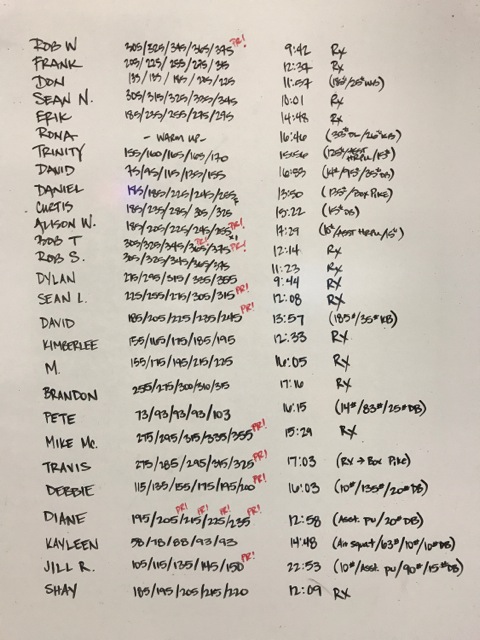 ROB W 305/325/345/365/375 PR! 9:42 RX
FRANK 205/225/255/275/315 12:34 RX
DON 135/155/185/205/225 11:57
SEAN N. 305/315/325/335/345 10:01 RX
ERIK 185/235/255/275/295 14:48 RX
RONA - WARM UP - 16:46
TRINITY 155/160/165/165/170
DAVID 75/95/115/135/155 16:33
DANIEL 185/185/225/245/255 13:50 (135#/BOX PIKE)
CURTIS 185/235/285/305/325 15:22 (15# DB)
ALISON W. 185/205/225/245/255 PR! 17:29
BOB T 305/325/345/365/375 PR! PR! 12:14 RX
ROB S. 305/325/345/365/375 11:23 RX
DYLAN 275/295/315/335/355 9:44 RX
SEAN L. 225/255/275/305/315 PR! 12:08 RX
DAVID 185/205/225/235/245 PR! 13:57 (185#/35# KB)
KIMBERLEE 155/165/175/185/195 12:33 RX
M. 155/175/195/215/225 16:05 RX
BRANDON 255/275/300/310/315 17:16 RX
PETE 73/93/93/93/103 16:15 (14#/83#/25# DB)
MIKE MC. 275/295/315/335/355 PR! 15:29 RX
TRAVIS 275/285/295/315/325 PR! 17:03 (RX → BOX PIKE)
DEBBIE 115/135/155/175/195/200 PR! 16:03 (10#/135#/20# DB)
DIANE 195/205/215/225/235 PR! PR! PR! PR! 12:58 (ASST. PU/20# DB)
KAYLEEN 58/78/88/93/93 14:48 (AIR SQUAT/63#/10#/10# DB)
JILL R. 105/115/135/145/150 PR! 22:53 (10#/ASST. PU/90#/15# DB)
SHAY 185/195/205/215/220 12:09 RX